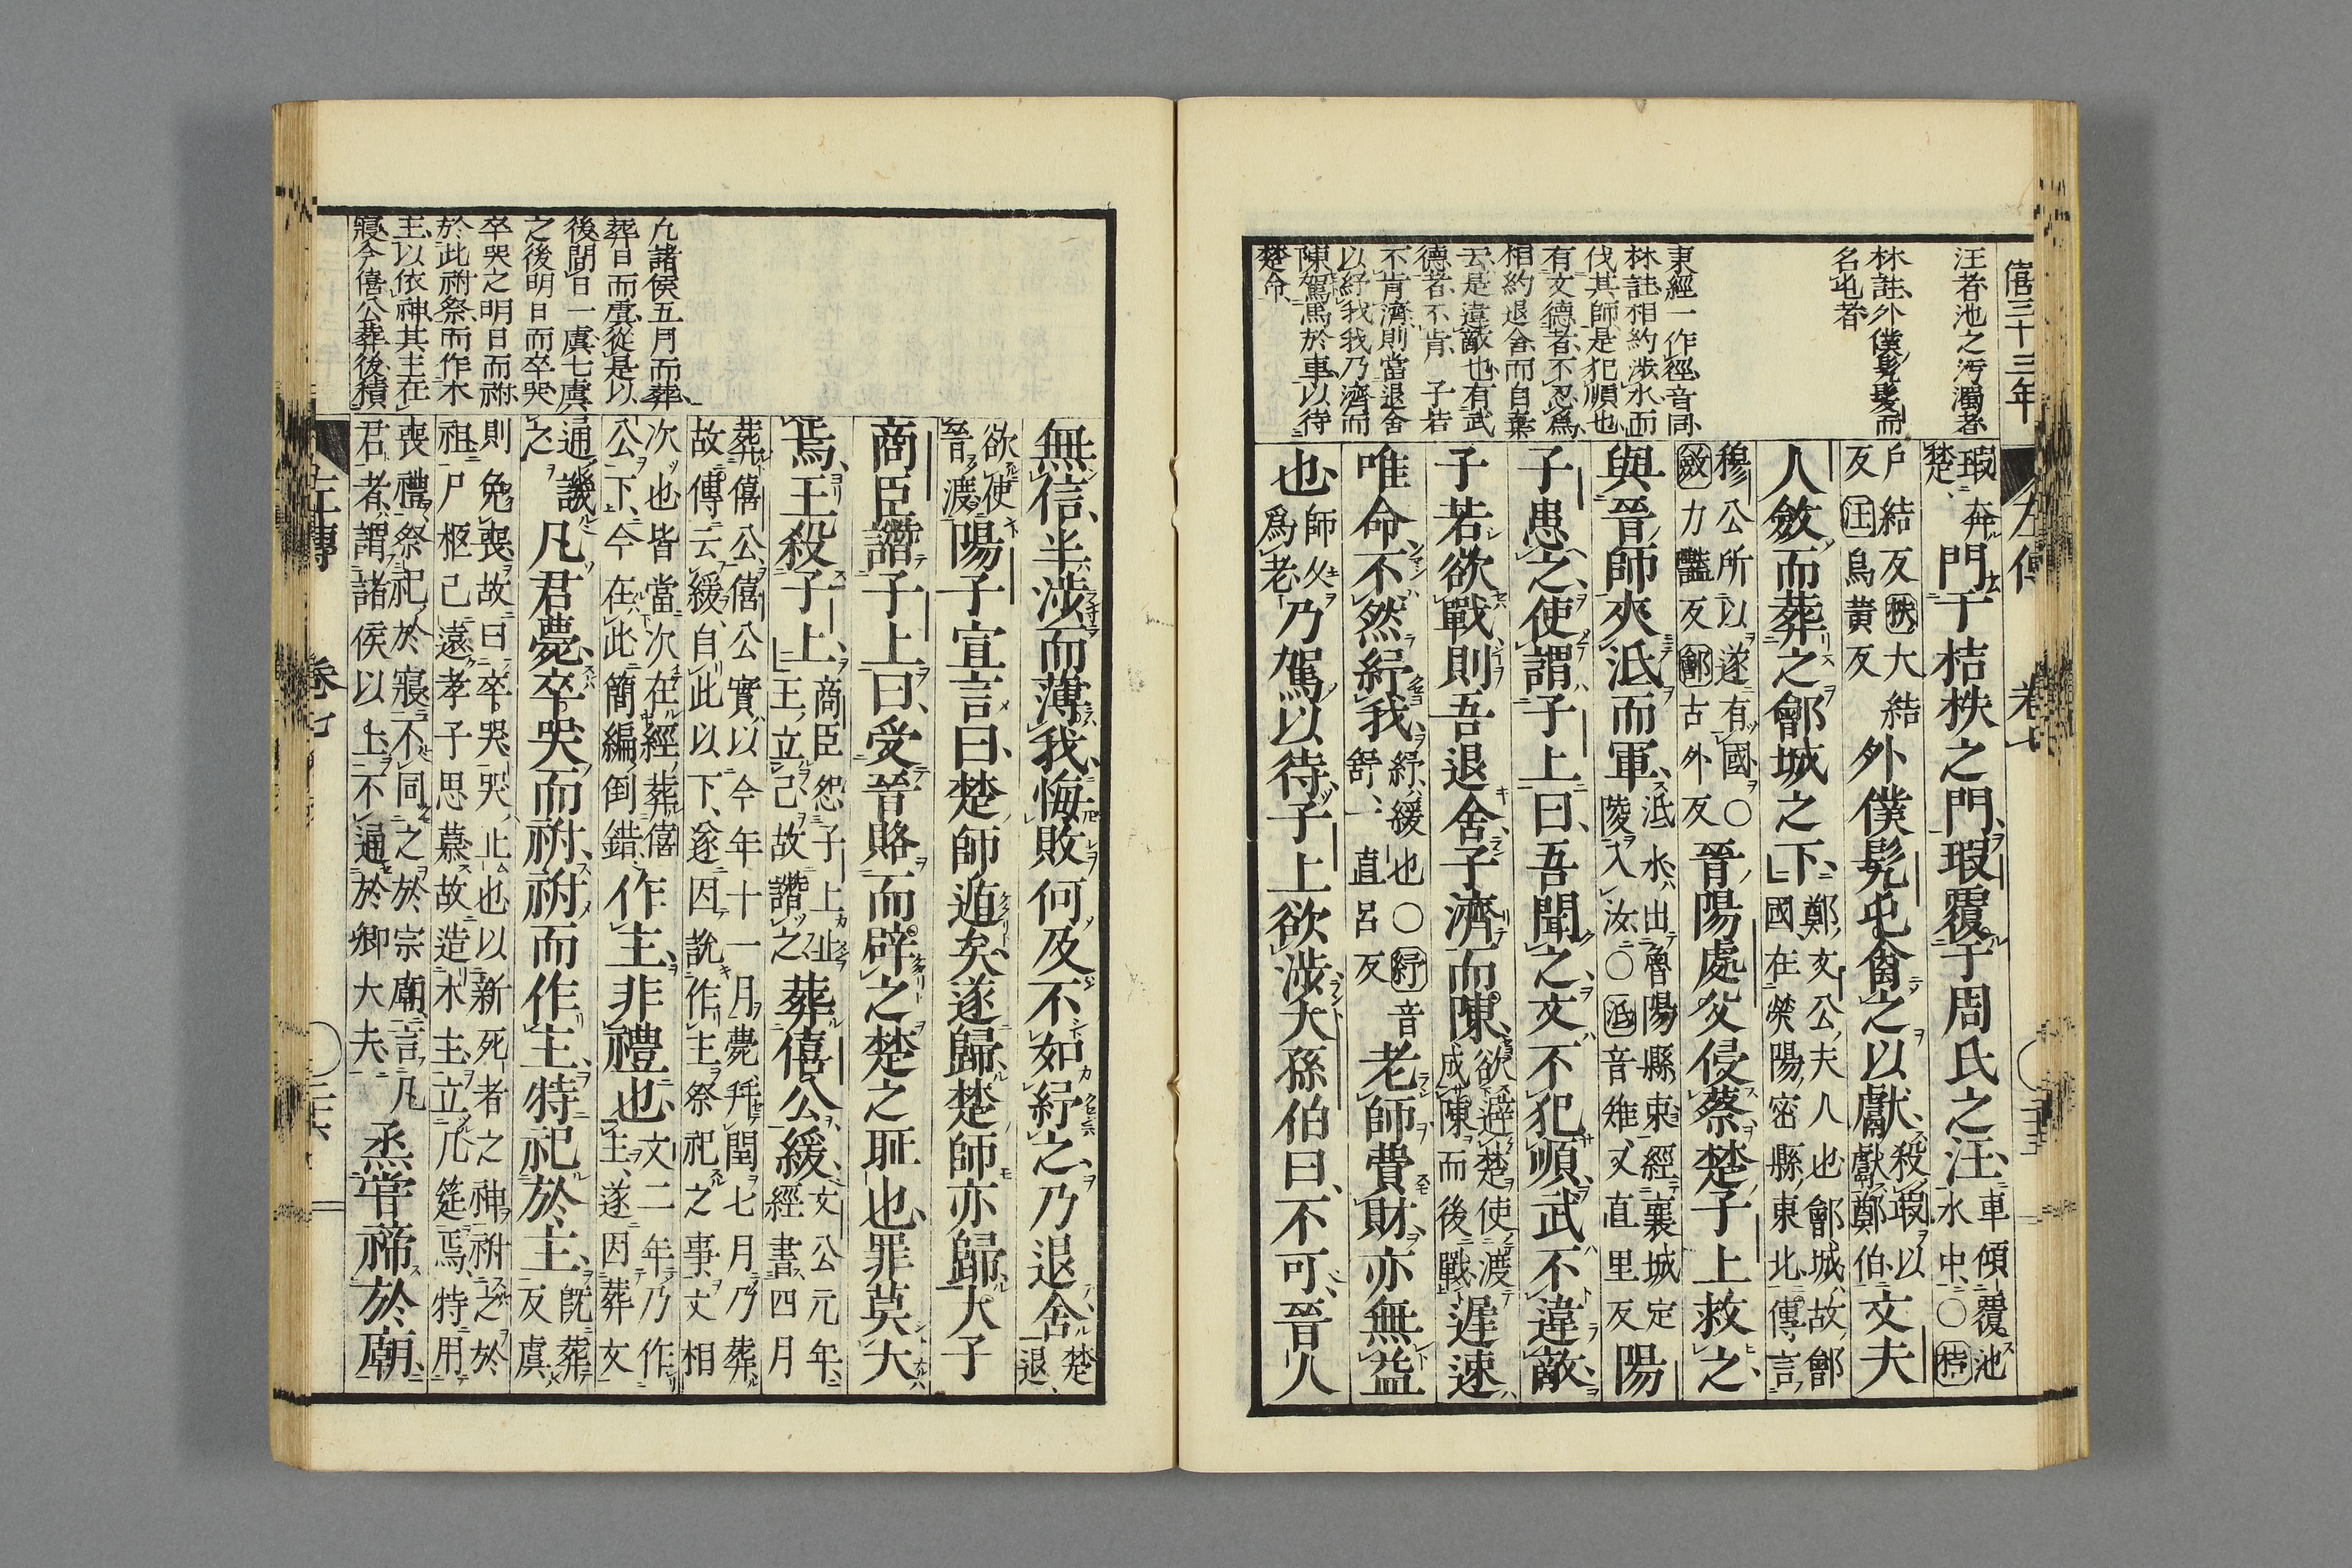 僖三十三年
汪者池之汚濁者
林註外僕髡髮而
名屯者
東經一作徑音同
林註相約渉水而
伐其師是犯順也
有文德者不忍爲
相約退舍而自棄
云是違敵也有武
德者不肯 子若
不肯濟則當退舍
以紓我我乃濟而
陳駕馬於車以待
楚命
左傳 卷七
瑕奔
楚
門于桔柣之門瑕覆于周氏之汪
車傾覆池
水中○桔
戶結反柣大結
反汪烏黄反
外僕髡屯禽之以獻
殺瑕以
獻鄭伯
文夫
人斂而葬之鄶城之下
鄭文公夫人也鄶城故鄶
國在滎陽密縣東北傳言
穆公所以遂有國○
斂力豔反鄶古外反
晉陽處父侵蔡楚子上救之
與晉師夾泜而軍
泜水出魯陽縣東經襄城定
陵入汝○泜音雉又直里反
陽
子患之使謂子上曰吾聞之文不犯順武不違敵
子若欲戰則吾退舍子濟而陳
欲避楚使渡
成陳而後戰
遲速
唯命不然紓我
紓緩也○紓音
舒一直呂反
老師費財亦無益
也
師久
爲老
乃駕以待子上欲渉大孫伯曰不可晉人
無信半渉而薄我悔敗何及不如紓之乃退舍
楚
退
欲使
晉渡
陽子宣言曰楚師遁矣遂歸楚師亦歸大子
商臣譖子上曰受晉賂而辟之楚之耻也罪莫大
焉王殺子上
商臣怨子上止
王立己故譖之
葬僖公緩
文公元年
經書四月
葬僖公僖公實以今年十一月薨幷閏七月乃葬
故傳云緩自此以下遂因說作主祭祀之事文相
次也皆當次在經葬僖
公下今在此簡編倒錯
作主非禮也
文二年乃作
主遂因葬文
通譏
之
凡君薨卒哭而祔祔而作主特祀於主
旣葬
反虞
則免喪故曰卒哭哭止也以新死者之神祔之於
祖尸柩已遠孝子思慕故造木主立几筵焉特用
喪禮祭祀於寢不同之於宗廟言凡
君者謂諸侯以上不通於卿大夫
烝嘗禘於廟
凡諸侯五月而葬
葬日而虞從是以
後間日一虞七虞
之後明日而卒哭
卒哭之明日而祔
於此祔祭而作木
主以依神其主在
寢今僖公葬後積
左傳 卷七